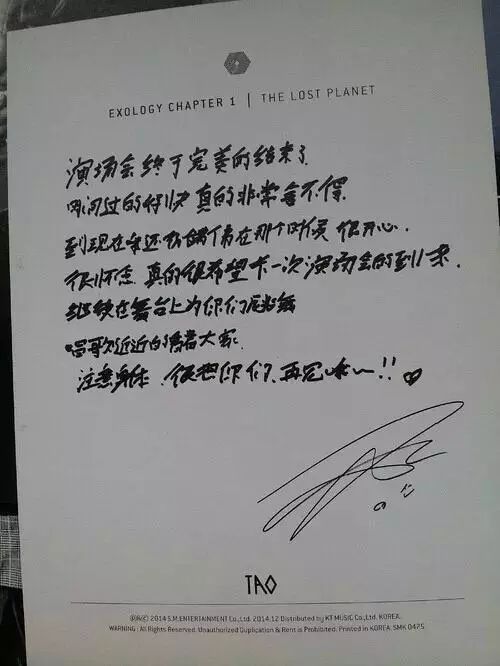 EXOLOGY CHAPTER 1 | THE LOST PLANET
演唱会终于完美的结束了
时间过的很快 真的非常舍不得
到现在我还仿佛停留在那个时候 很开心.
很怀念. 真的很希望下一次演唱会的到来.
继续在舞台上为你们 跳舞
唱歌 近近的 看着大家.
注意身体. 很想你们. 再见咯~!! ♡
TAO
Ⓟ&Ⓒ 2014 S.M.ENTERTAINMENT Co., Ltd. 2014.12 Distributed by KT MUSIC Co., Ltd. KOREA.
WARNING : All Rights Reserved. Unauthorized Duplication & Rent is Prohibited. Printed in KOREA. SMK 0475